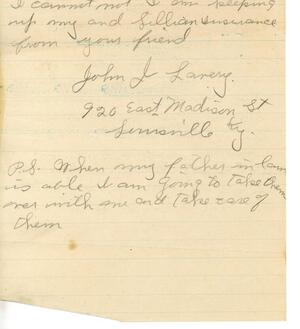 I cannot not I am keeping
up my and Lillian insurance
from your friend
John J Lavery.
920 East Madison St
Louisville Ky.
P.S. When my father in law
is able I am going to take them
over with me and take care of
them